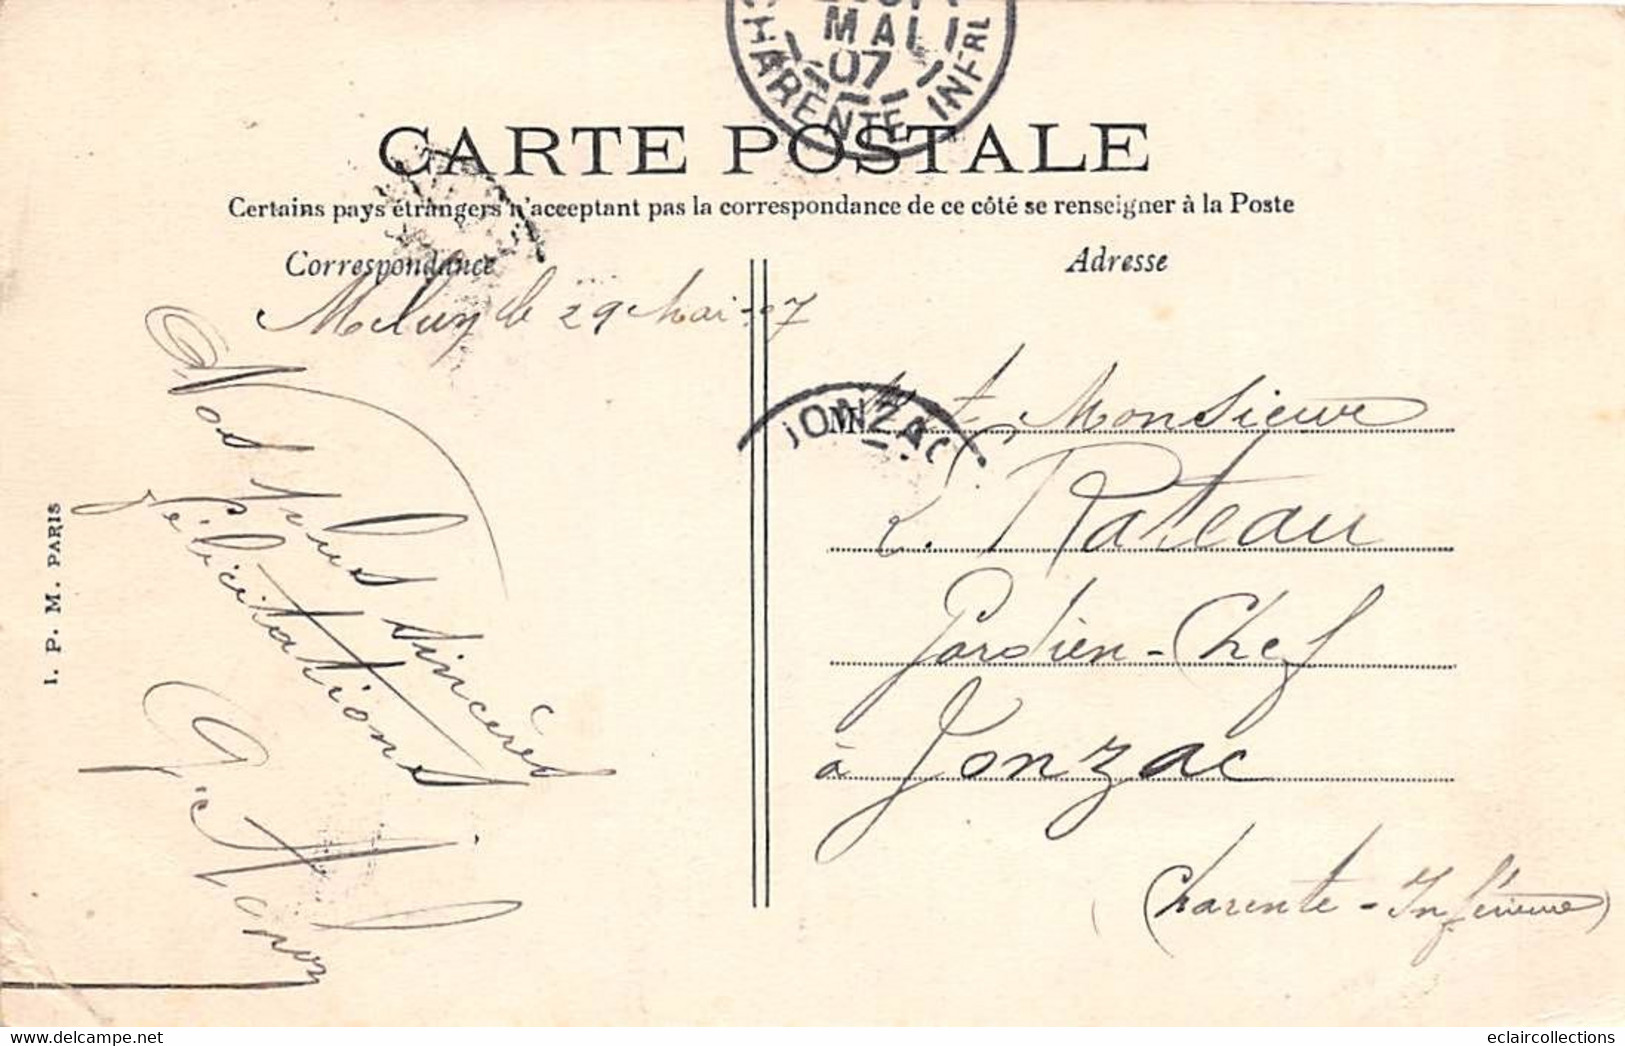 MAI
07
CHARENTE INFRE
CARTE POSTALE
Certains pays étrangers n'acceptant pas la correspondance de ce côté se renseigner à la Poste
Correspondance
Adresse
Melun le 29 Mai 07
JONZAC
M
et Monsieur
Rateau
Gardien-Chef
à Jonzac
(Charente-Inférieure)
Nos plus sincères
félicitations
I. P. M. PARIS
www.delcampe.net
eclaircollections